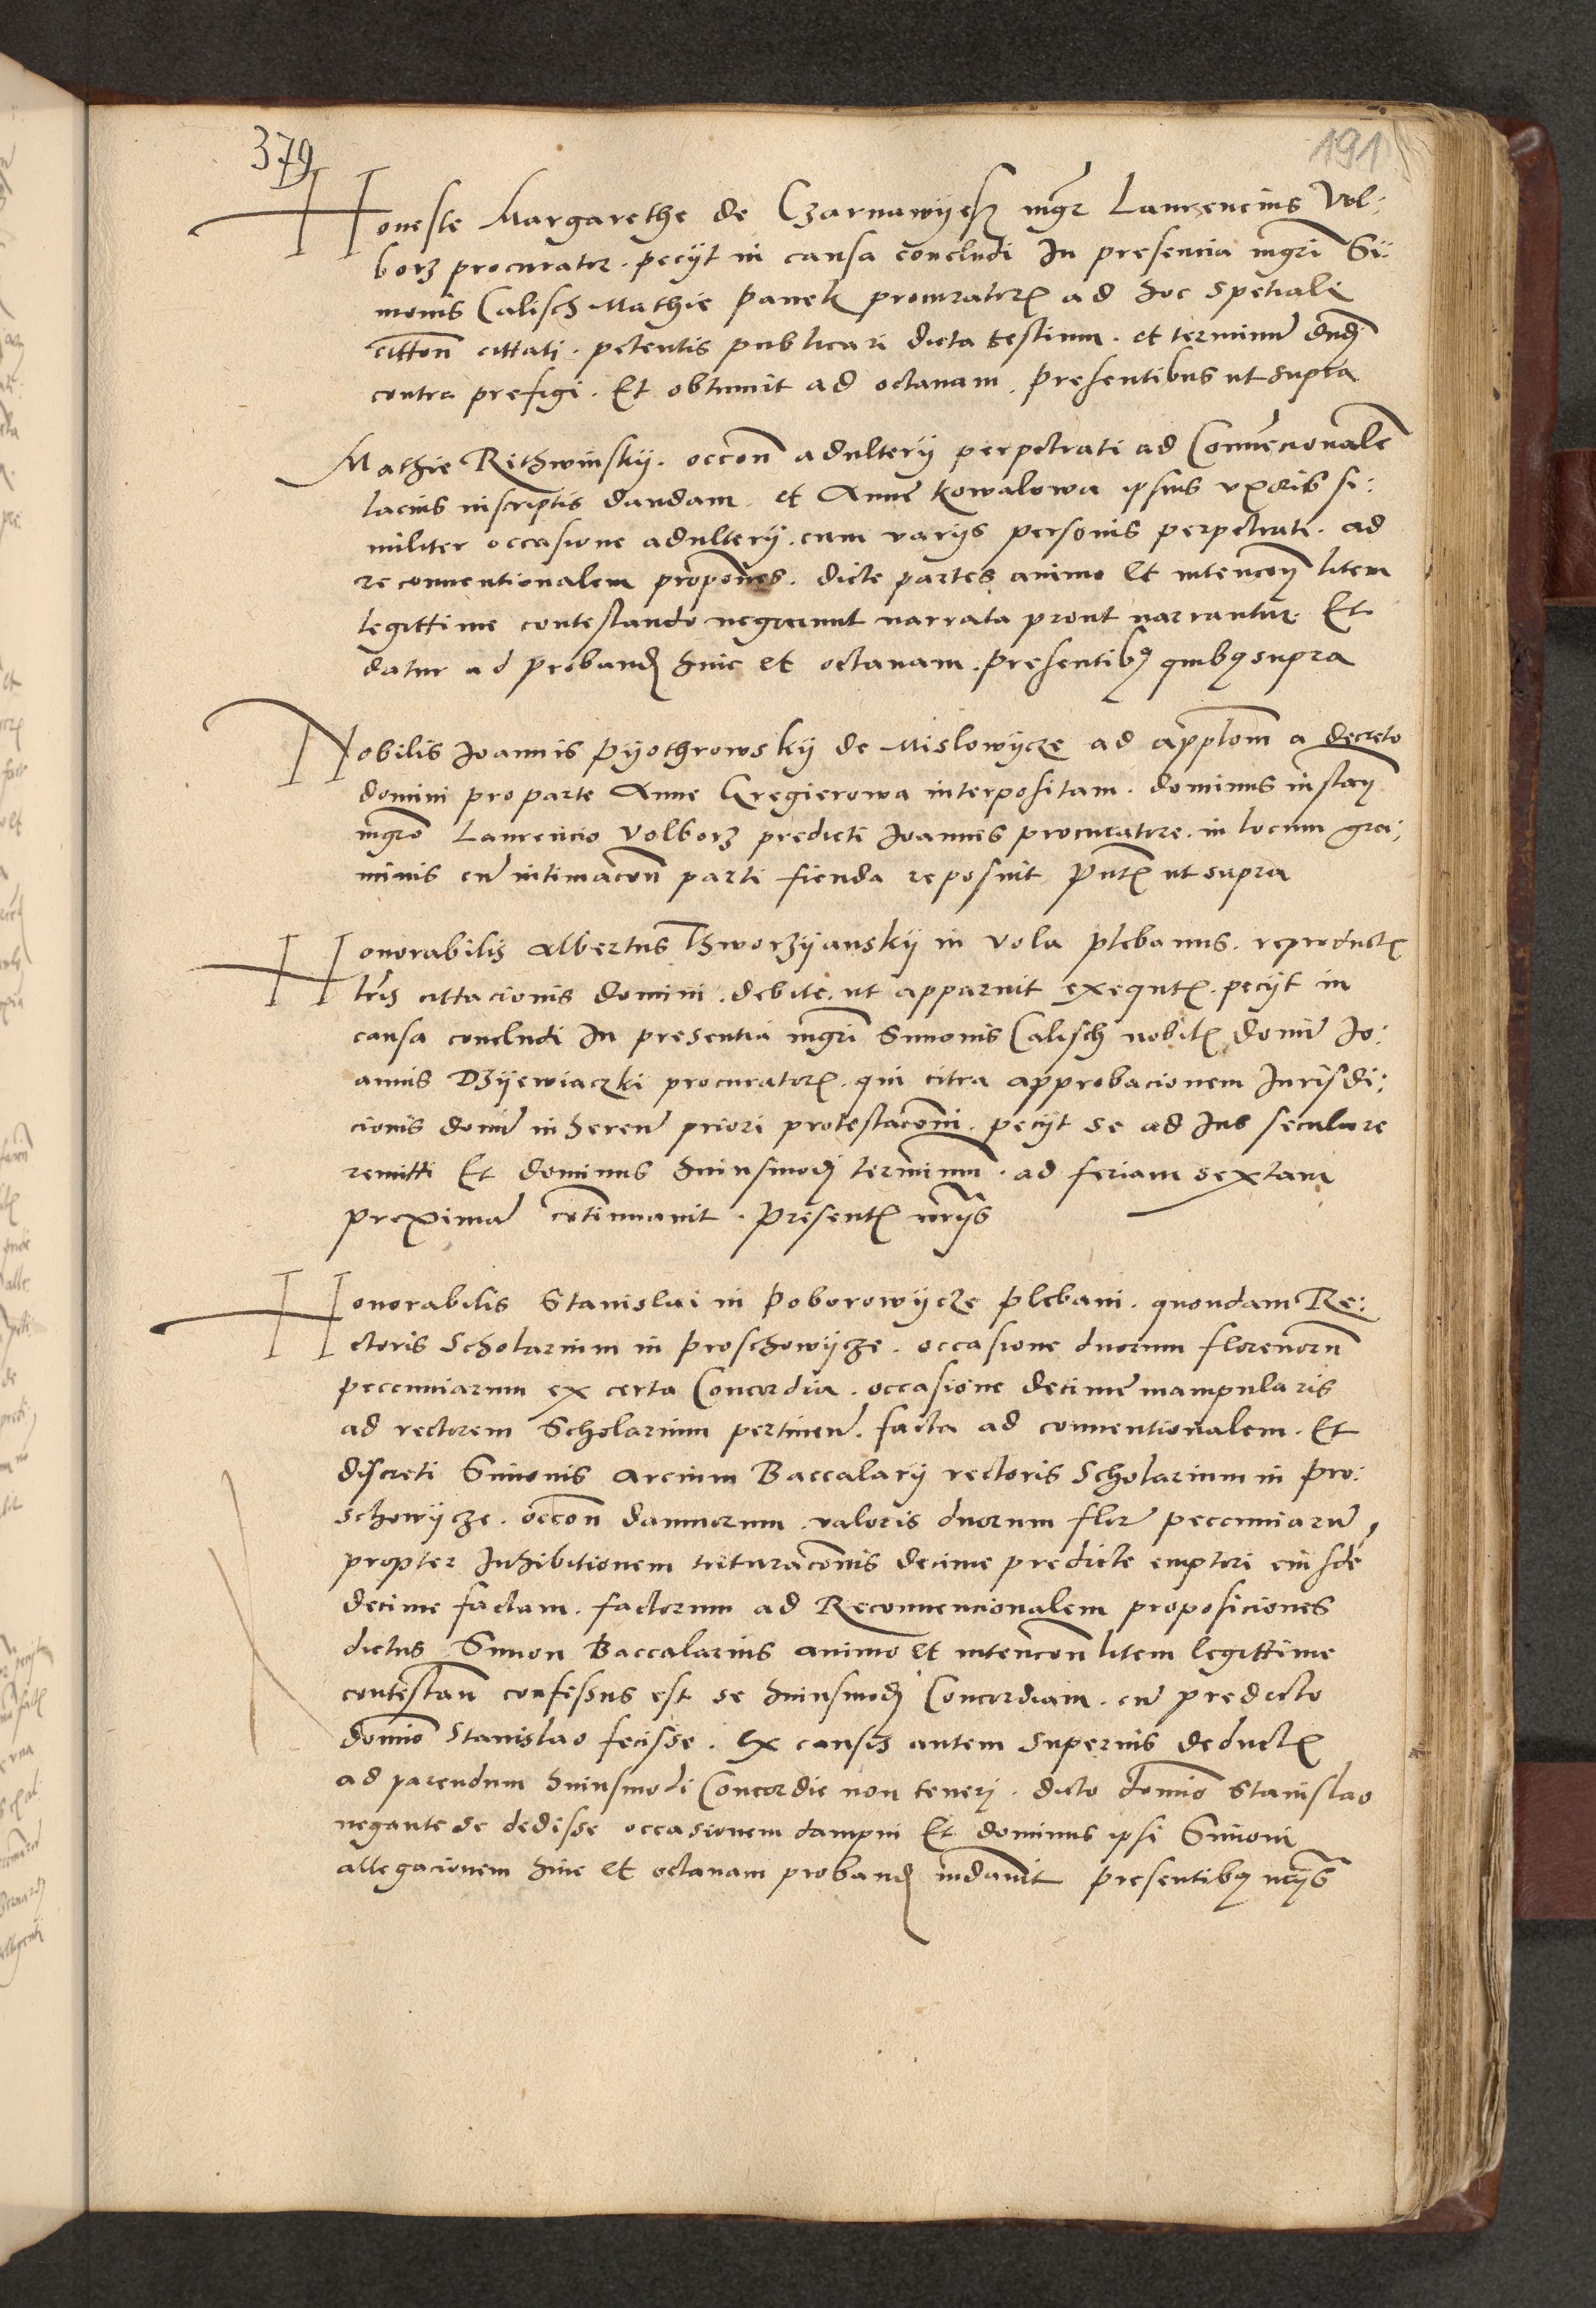 379
191
Honeste Margarethe de Czarnawyesz mgr Laurencius Vol:
borz procurator. peciit in causa concludi In presencia mgri Si:
monis Calisch Mathie Panek procuratoris ad hoc spetiale
citton cittati. petentis publicari dicta testium. et terminum dndj
contra prefigi. Et obtinuit ad octauam. presentibus ut supra
Mathie Rithwinskij. occon adulterij perpetrati ad Conuencionalem
lacius inscriptis dandam. et Anne Kowalowa ipsius uxoris si:
militer occasione adulterij. cum varijs personis perpetrati. ad
reconuentionalem propones. dicte partes animo et intencoj litem
legittime contestando negarunt narrata prout narrantur. Et
datur ad probandj hinc et octauam. presentibus quibus supra
Nobilis Joannis Pyothrowskij de Mislowycze ad applom a decreto
domini pro parte Anne Gregierowa interpositam. dominus instan
mgro Laurencio Volborz predicti Joannis procuratore. in locum gra:
minis cum intimacon parti fienda reposuit Pntibus ut supra
Honorabilis Albertus Thworzyanskij in Vola plebanus. reproductis
lris cittacionis domini. debite. ut apparuit exequtis. peciit in
causa concludi In presentia mgri Simonis Calisch nobilis domini Jo:
annis Dzyewiaczki procuratoris. qui citra approbacionem Jurisdi:
cionis domini inheren priori protestaconi. peciit se ad Jus seculare
remitti Et dominus huiusmodj terminum. ad feriam sextam
proximam continuauit. Presentibus nrijs
Honorabilis Stanislai in Poborowycze plebani. quondam Re:
ctoris Scholarium in Proschowycze. occasione duorum florenorum
peccuniarum ex certa Concordia. occasione decime manipularis
ad rectorem Scholarium pertinen. facta ad conuentionalem. Et
discreti Simonis arcium Baccalarij rectoris Scholarium in Pro:
schowycze. occon damnorum. valoris duorum flor peccuniarum
propter Inhibitionem trituraconis decime predicte emptori eiusde
decime factam. factorum ad Reconuencionalem proposiciones
dictus Simon Baccalarius animo et intencon litem legittime
contestan confessus est se huiusmodj Concordiam. cum predicto
domino Stanislao fecisse. Ex causis autem superius deductis
ad parendum huiusmodi Concordie non tenerj. dicto domino Stanislao
negante se dedisse occasionem dampni Et dominus ipsi Simoni
allegacionem hinc et octauam probandj indauit presentibus nrijs